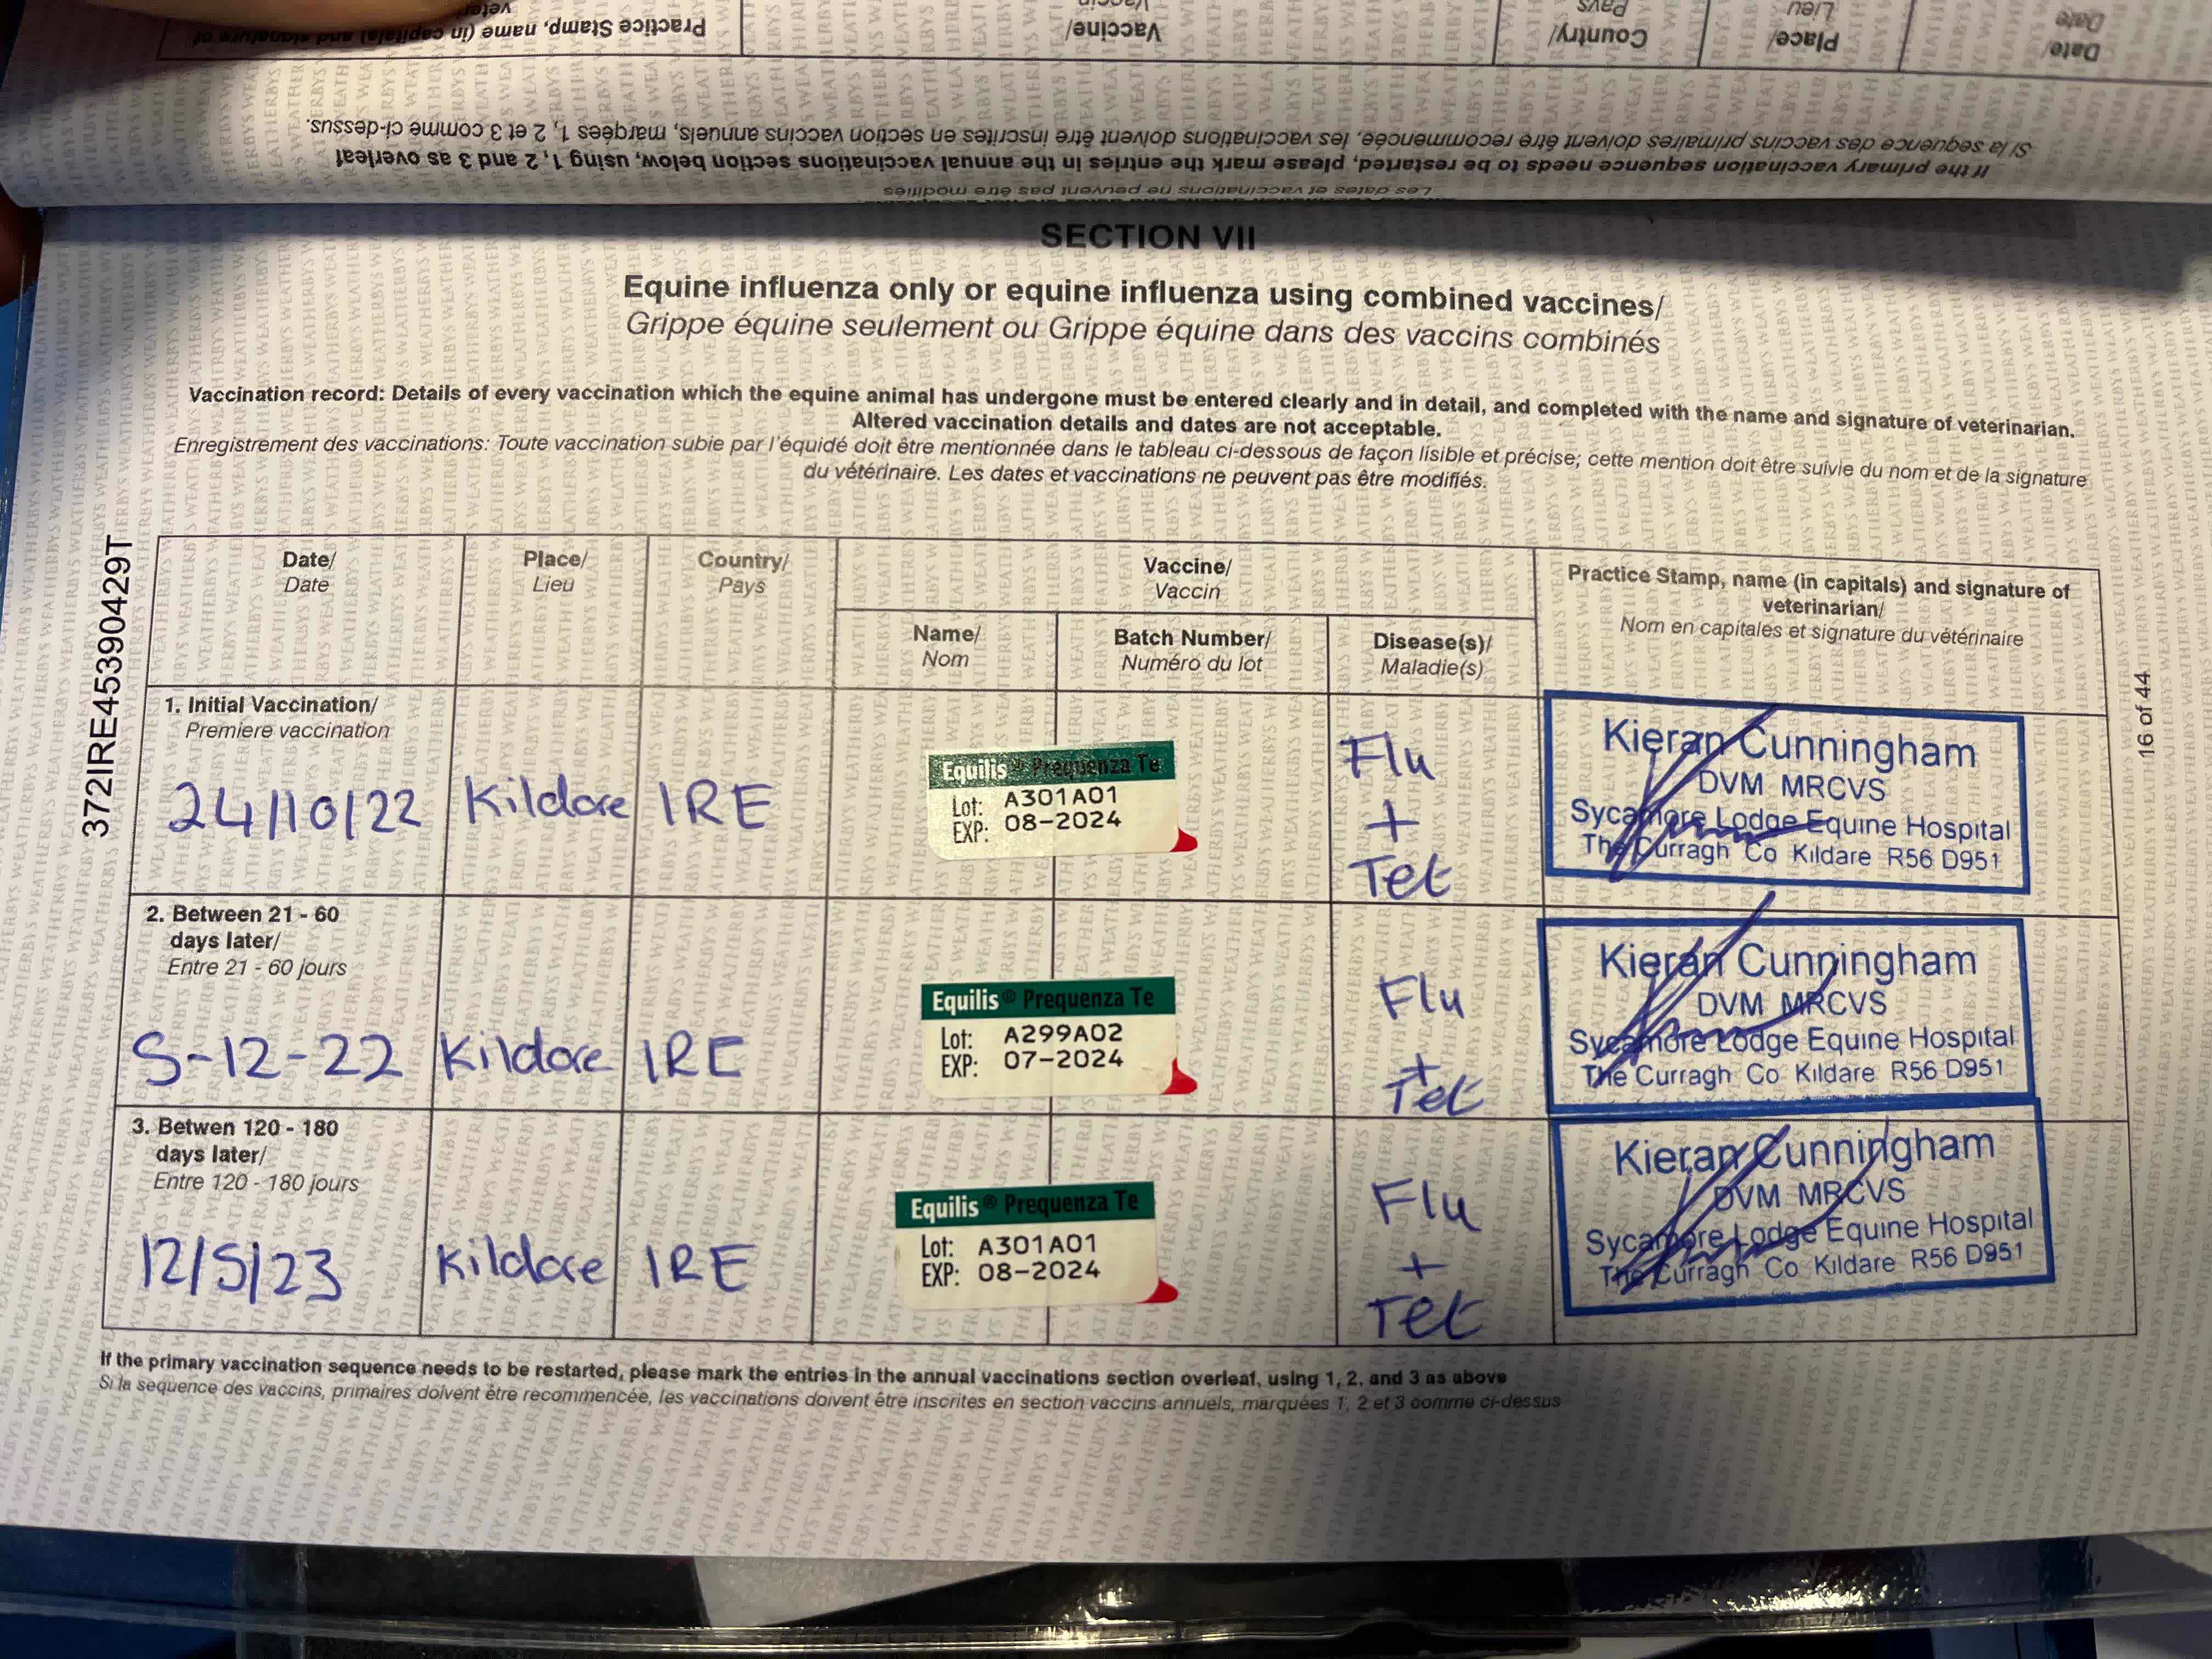 Practice Stamp, name (in capitals) and signature of
Vaccine/
Country/
Pays
Place/
Lieu
Date/
Date
If the primary vaccination sequence needs to be restarted, please mark the entries in the annual vaccinations section below, using 1, 2 and 3 as overleaf
Si la sequence des vaccins primaires doivent être recommencée, les vaccinations doivent être inscrites en section vaccins annuels, marqées 1, 2 et 3 comme ci-dessus.
Les dates et vaccinations ne peuvent pas être modifiés
SECTION VII
Equine influenza only or equine influenza using combined vaccines/
Grippe équine seulement ou Grippe équine dans des vaccins combinés
Vaccination record: Details of every vaccination which the equine animal has undergone must be entered clearly and in detail, and completed with the name and signature of veterinarian.
Altered vaccination details and dates are not acceptable.
Enregistrement des vaccinations: Toute vaccination subie par l'équidé doit être mentionnée dans le tableau ci-dessous de façon lisible et précise; cette mention doit être suivie du nom et de la signature
du vétérinaire. Les dates et vaccinations ne peuvent pas être modifiés.
372IRE45390429T
16 of 44
Date/
Date
Place/
Lieu
Country/
Pays
Vaccine/
Vaccin
Name/
Nom
Batch Number/
Numéro du lot
Disease(s)/
Maladie(s)
Practice Stamp, name (in capitals) and signature of
veterinarian/
Nom en capitales et signature du vétérinaire
1. Initial Vaccination/
Premiere vaccination
24/10/22 Kildare IRE
Equilis® Prequenza Te
Lot: A301A01
EXP: 08-2024
Flu
+
Tet
Kieran Cunningham
DVM MRCVS
Sycamore Lodge Equine Hospital
The Curragh Co Kildare R56 D951
2. Between 21 - 60
days later/
Entre 21 - 60 jours
5-12-22 Kildare IRE
Equilis® Prequenza Te
Lot: A299A02
EXP: 07-2024
Flu
+
Tet
Kieran Cunningham
DVM MRCVS
Sycamore Lodge Equine Hospital
The Curragh Co Kildare R56 D951
3. Betwen 120 - 180
days later/
Entre 120 - 180 jours
12/5/23 Kildare IRE
Equilis® Prequenza Te
Lot: A301A01
EXP: 08-2024
Flu
+
Tet
Kieran Cunningham
DVM MRCVS
Sycamore Lodge Equine Hospital
The Curragh Co Kildare R56 D951
If the primary vaccination sequence needs to be restarted, please mark the entries in the annual vaccinations section overleaf, using 1, 2, and 3 as above
Si la sequence des vaccins, primaires doivent être recommencée, les vaccinations doivent être inscrites en section vaccins annuels, marquées 1, 2 et 3 comme ci-dessus